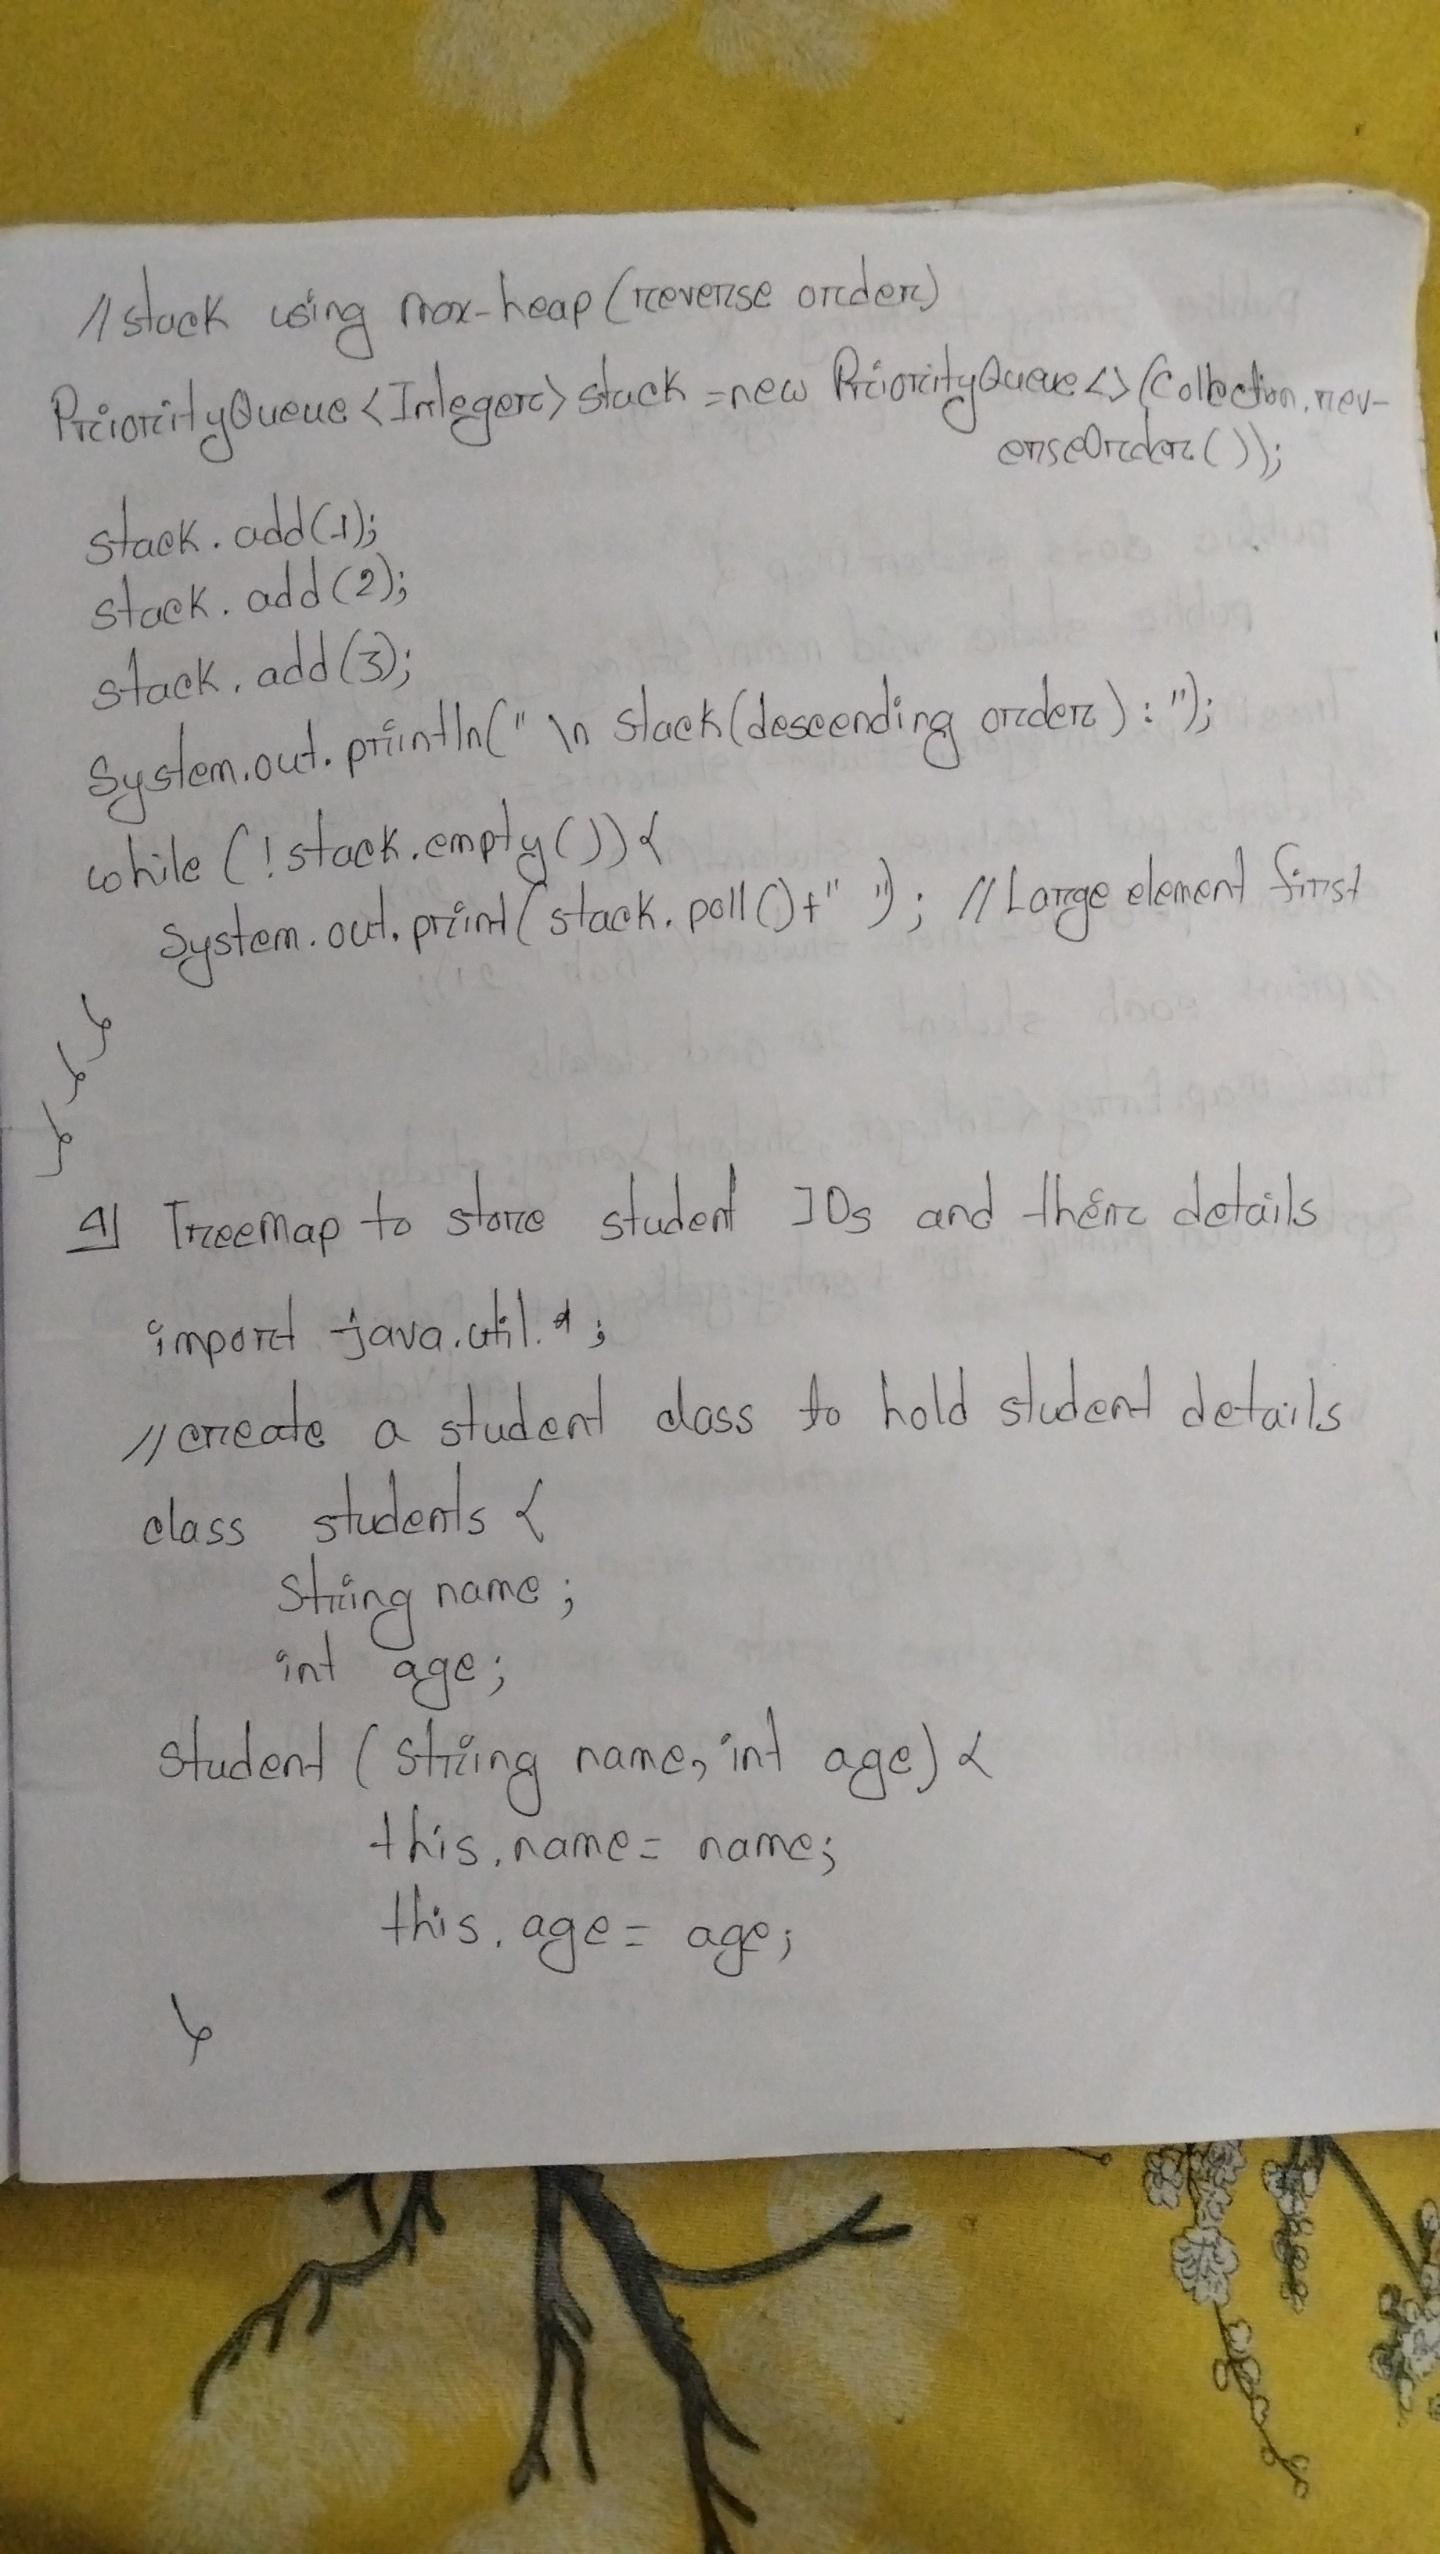 //stack using max-heap (reverse order)
PriorityQueue<Integer> stack = new PriorityQueue<>(Collection.rev-
erseOrder());
stack.add(1);
stack.add(2);
stack.add(3);
System.out.println("\n Stack(descending order):");
while (!stack.empty()){
System.out.print(stack.poll()+" "); //Large element first
}
}
}
4] TreeMap to store student IDs and their details
import java.util.*;
//create a student class to hold student details
class students {
String name;
int age;
student (String name, int age) {
this.name = name;
this.age = age;
}